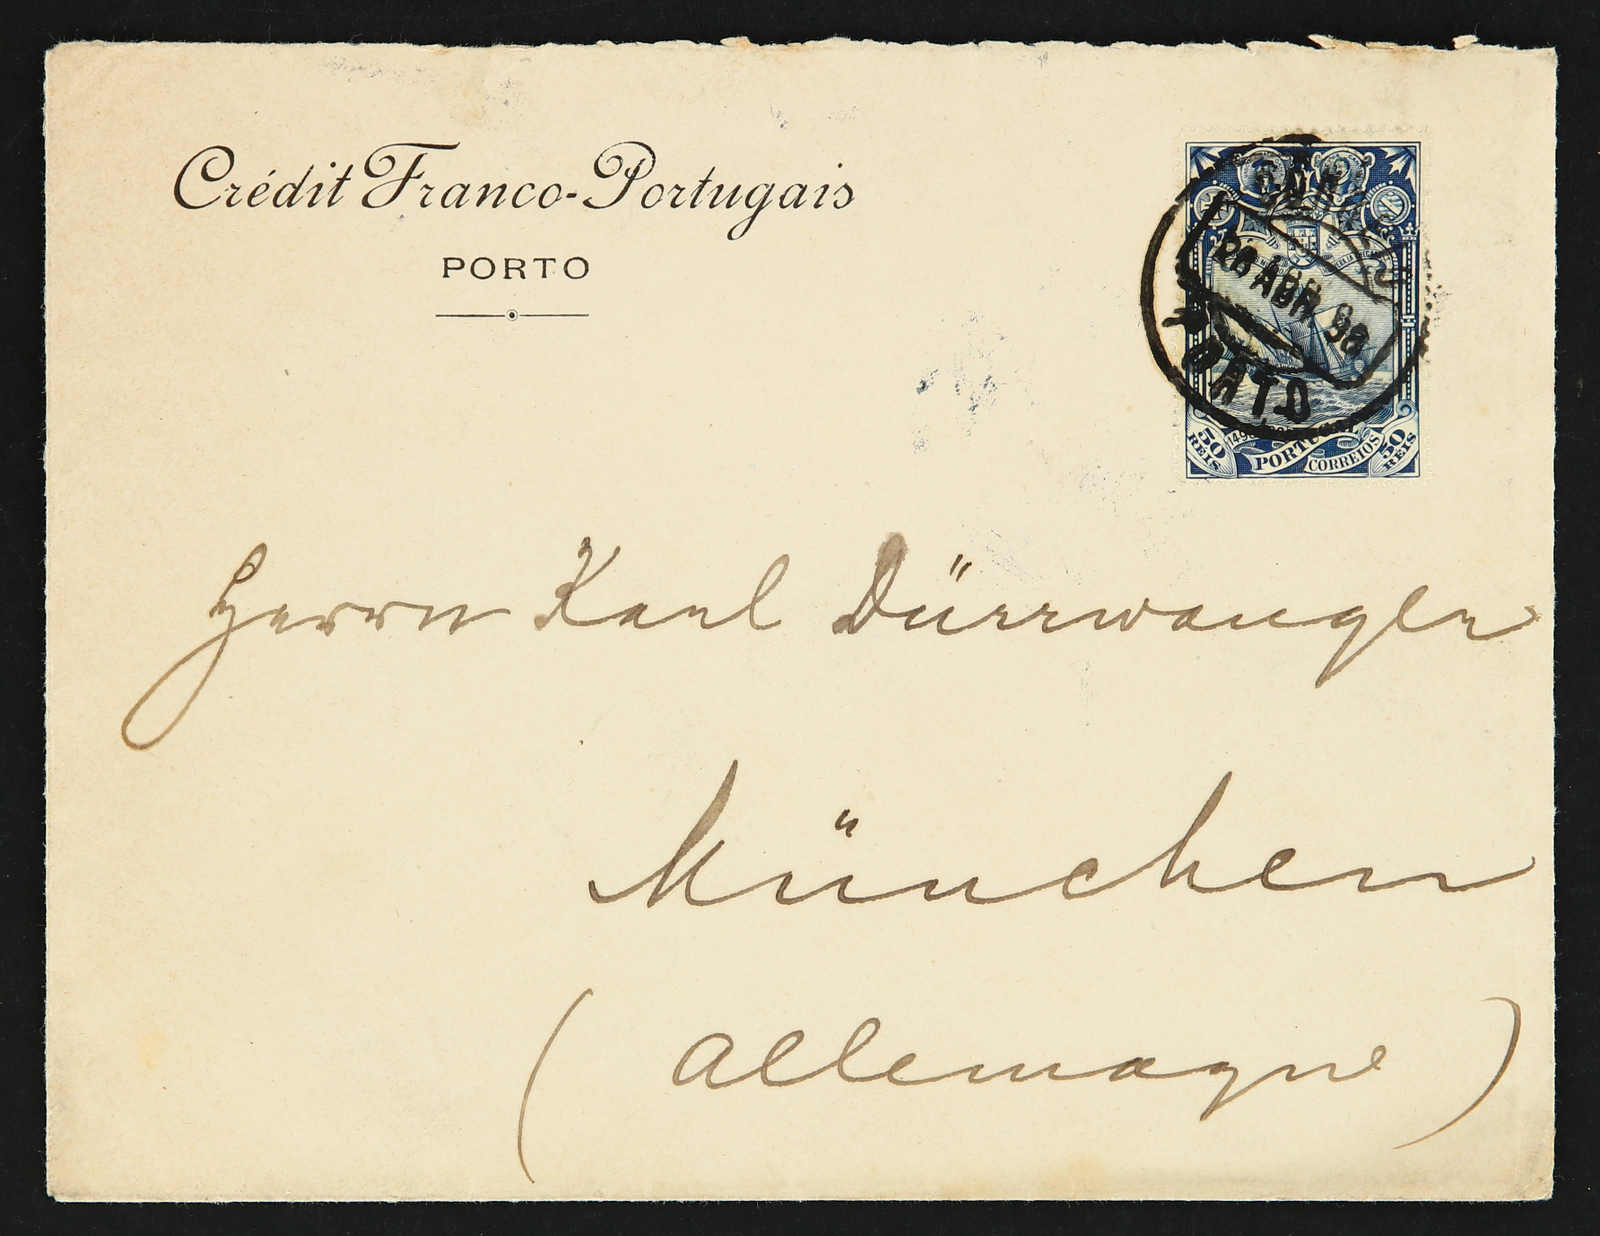 Crédit Franco-Portugais
PORTO
CORREIO
ABR 98
PORTO
50 REIS
PORTUGAL
CORREIOS
50 REIS
Herrn Karl Dürrwanger
München
(Allemagne)